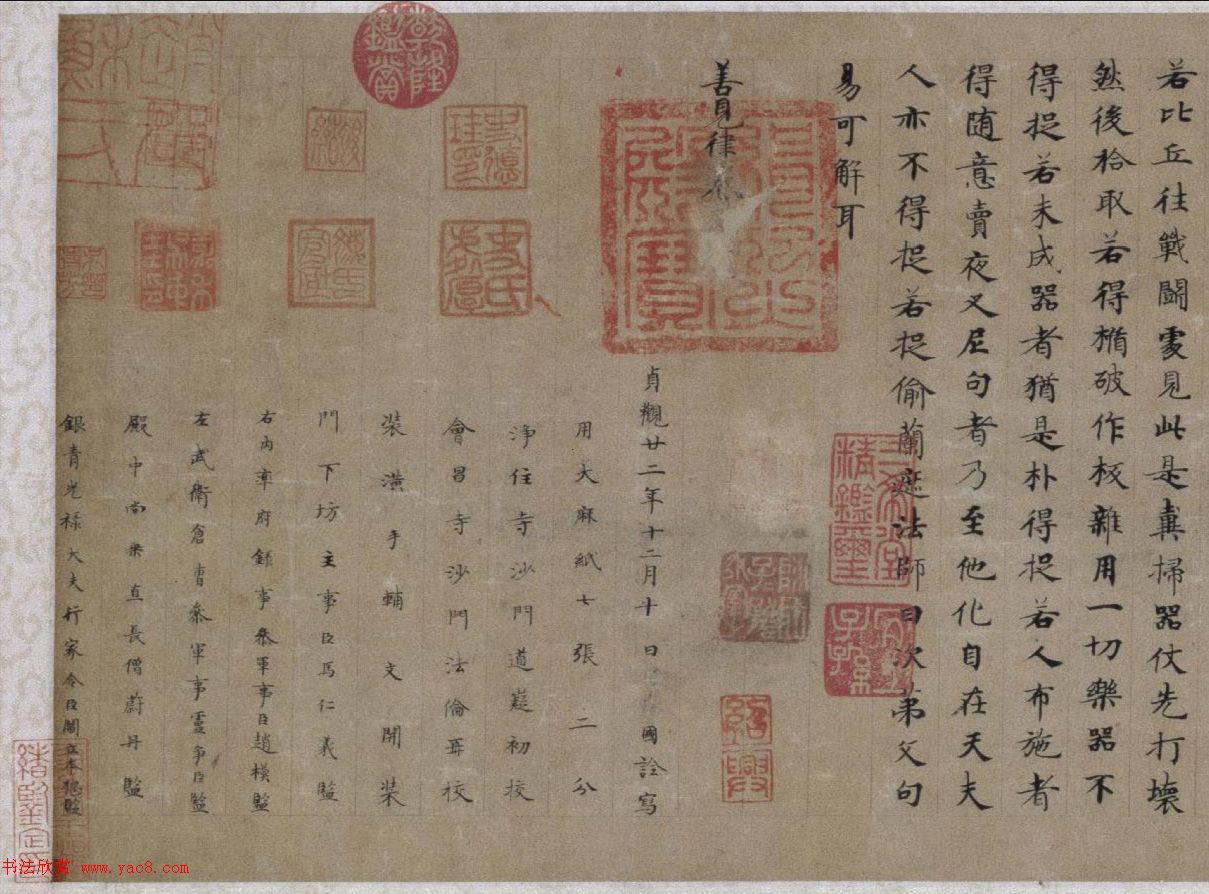 若比丘往戰鬪處見此是糞掃器仗先打壞
然後拾取若得楯破作板雜用一切樂器不
得捉若未成器者猶是朴得捉若人布施者
得随意賣夜叉尼句者乃至他化自在天夫
人亦不得捉若捉偷蘭遮法師曰次第文句
易可解耳
善見律卷
貞觀廿二年十二月十日 國詮寫
用大麻紙七張二分
淨住寺沙門道嶷初校
會昌寺沙門法倫再校
装潢手輔文開装
門下坊主事臣馬仁義監
右內率府錄事叅軍事臣趙模監
左武衛倉曹叅軍事靈爭臣監
殿中尚乘直長僧蔚丹監
銀青光禄大夫行家令臣閻立本捴監
乾隆鑑賞
書法欣賞 www.yac8.com